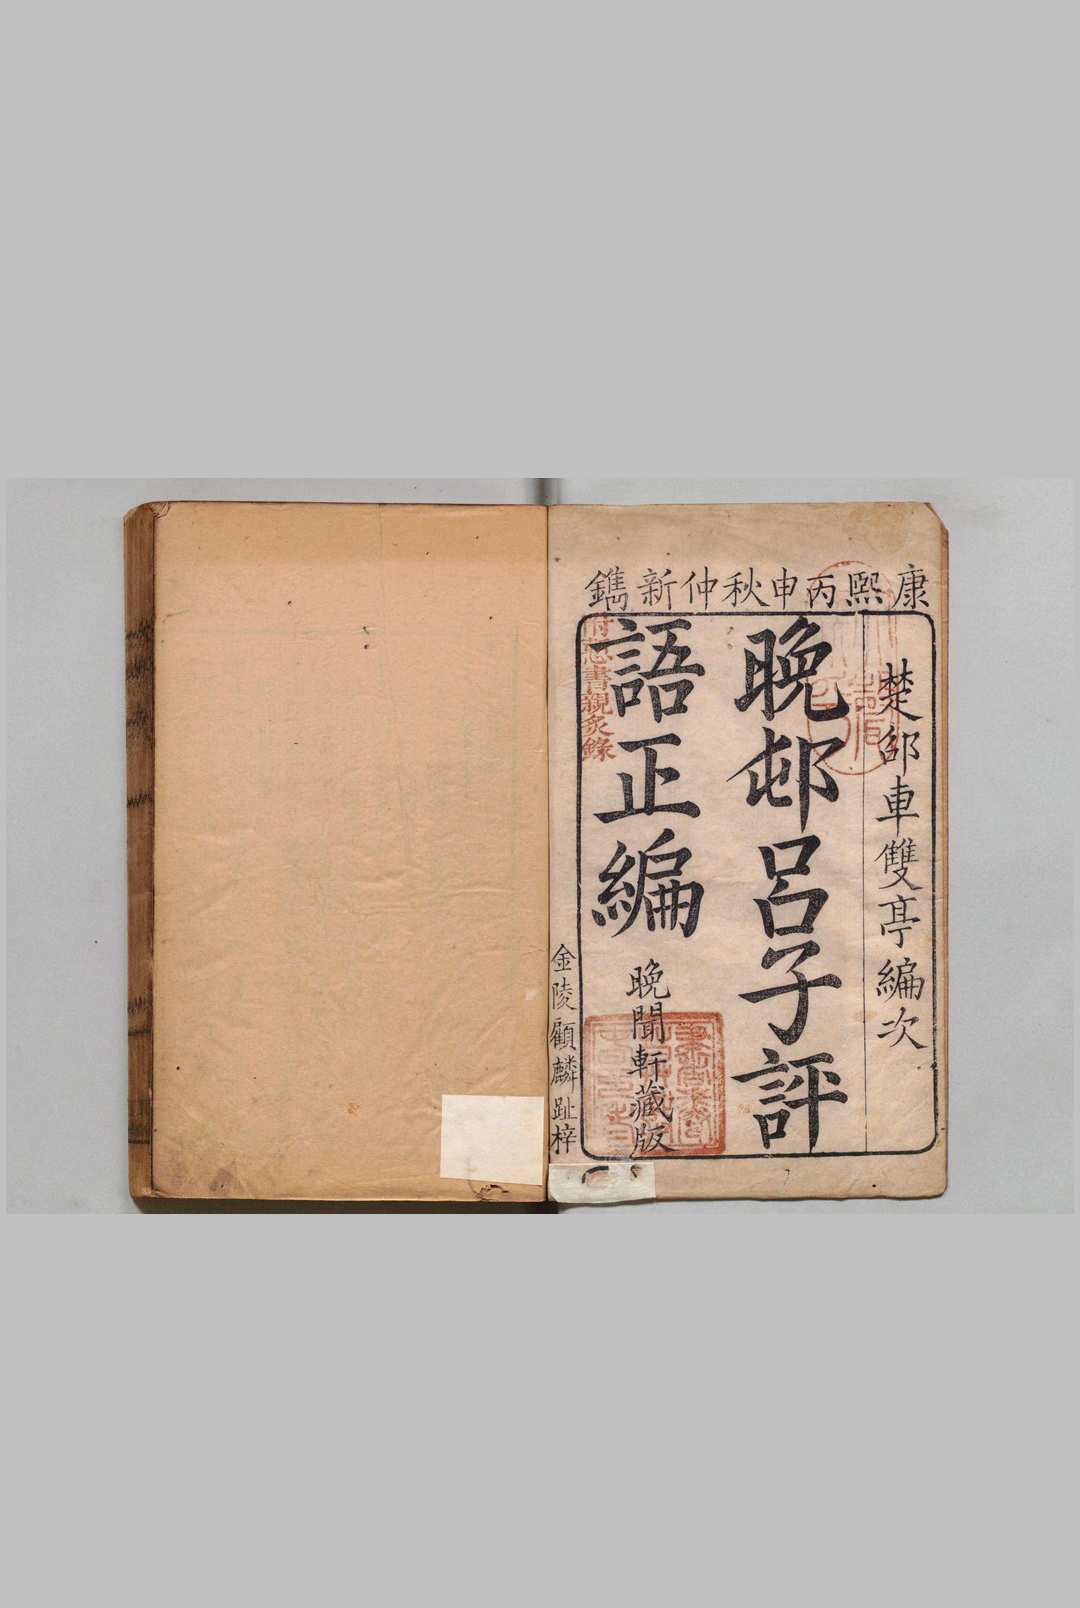 康熙丙申秋仲新鐫
楚邵車雙亭編次
晚邨呂子評
語正編
附慙書親炙錄
晚聞軒藏版
金陵顧麟趾梓